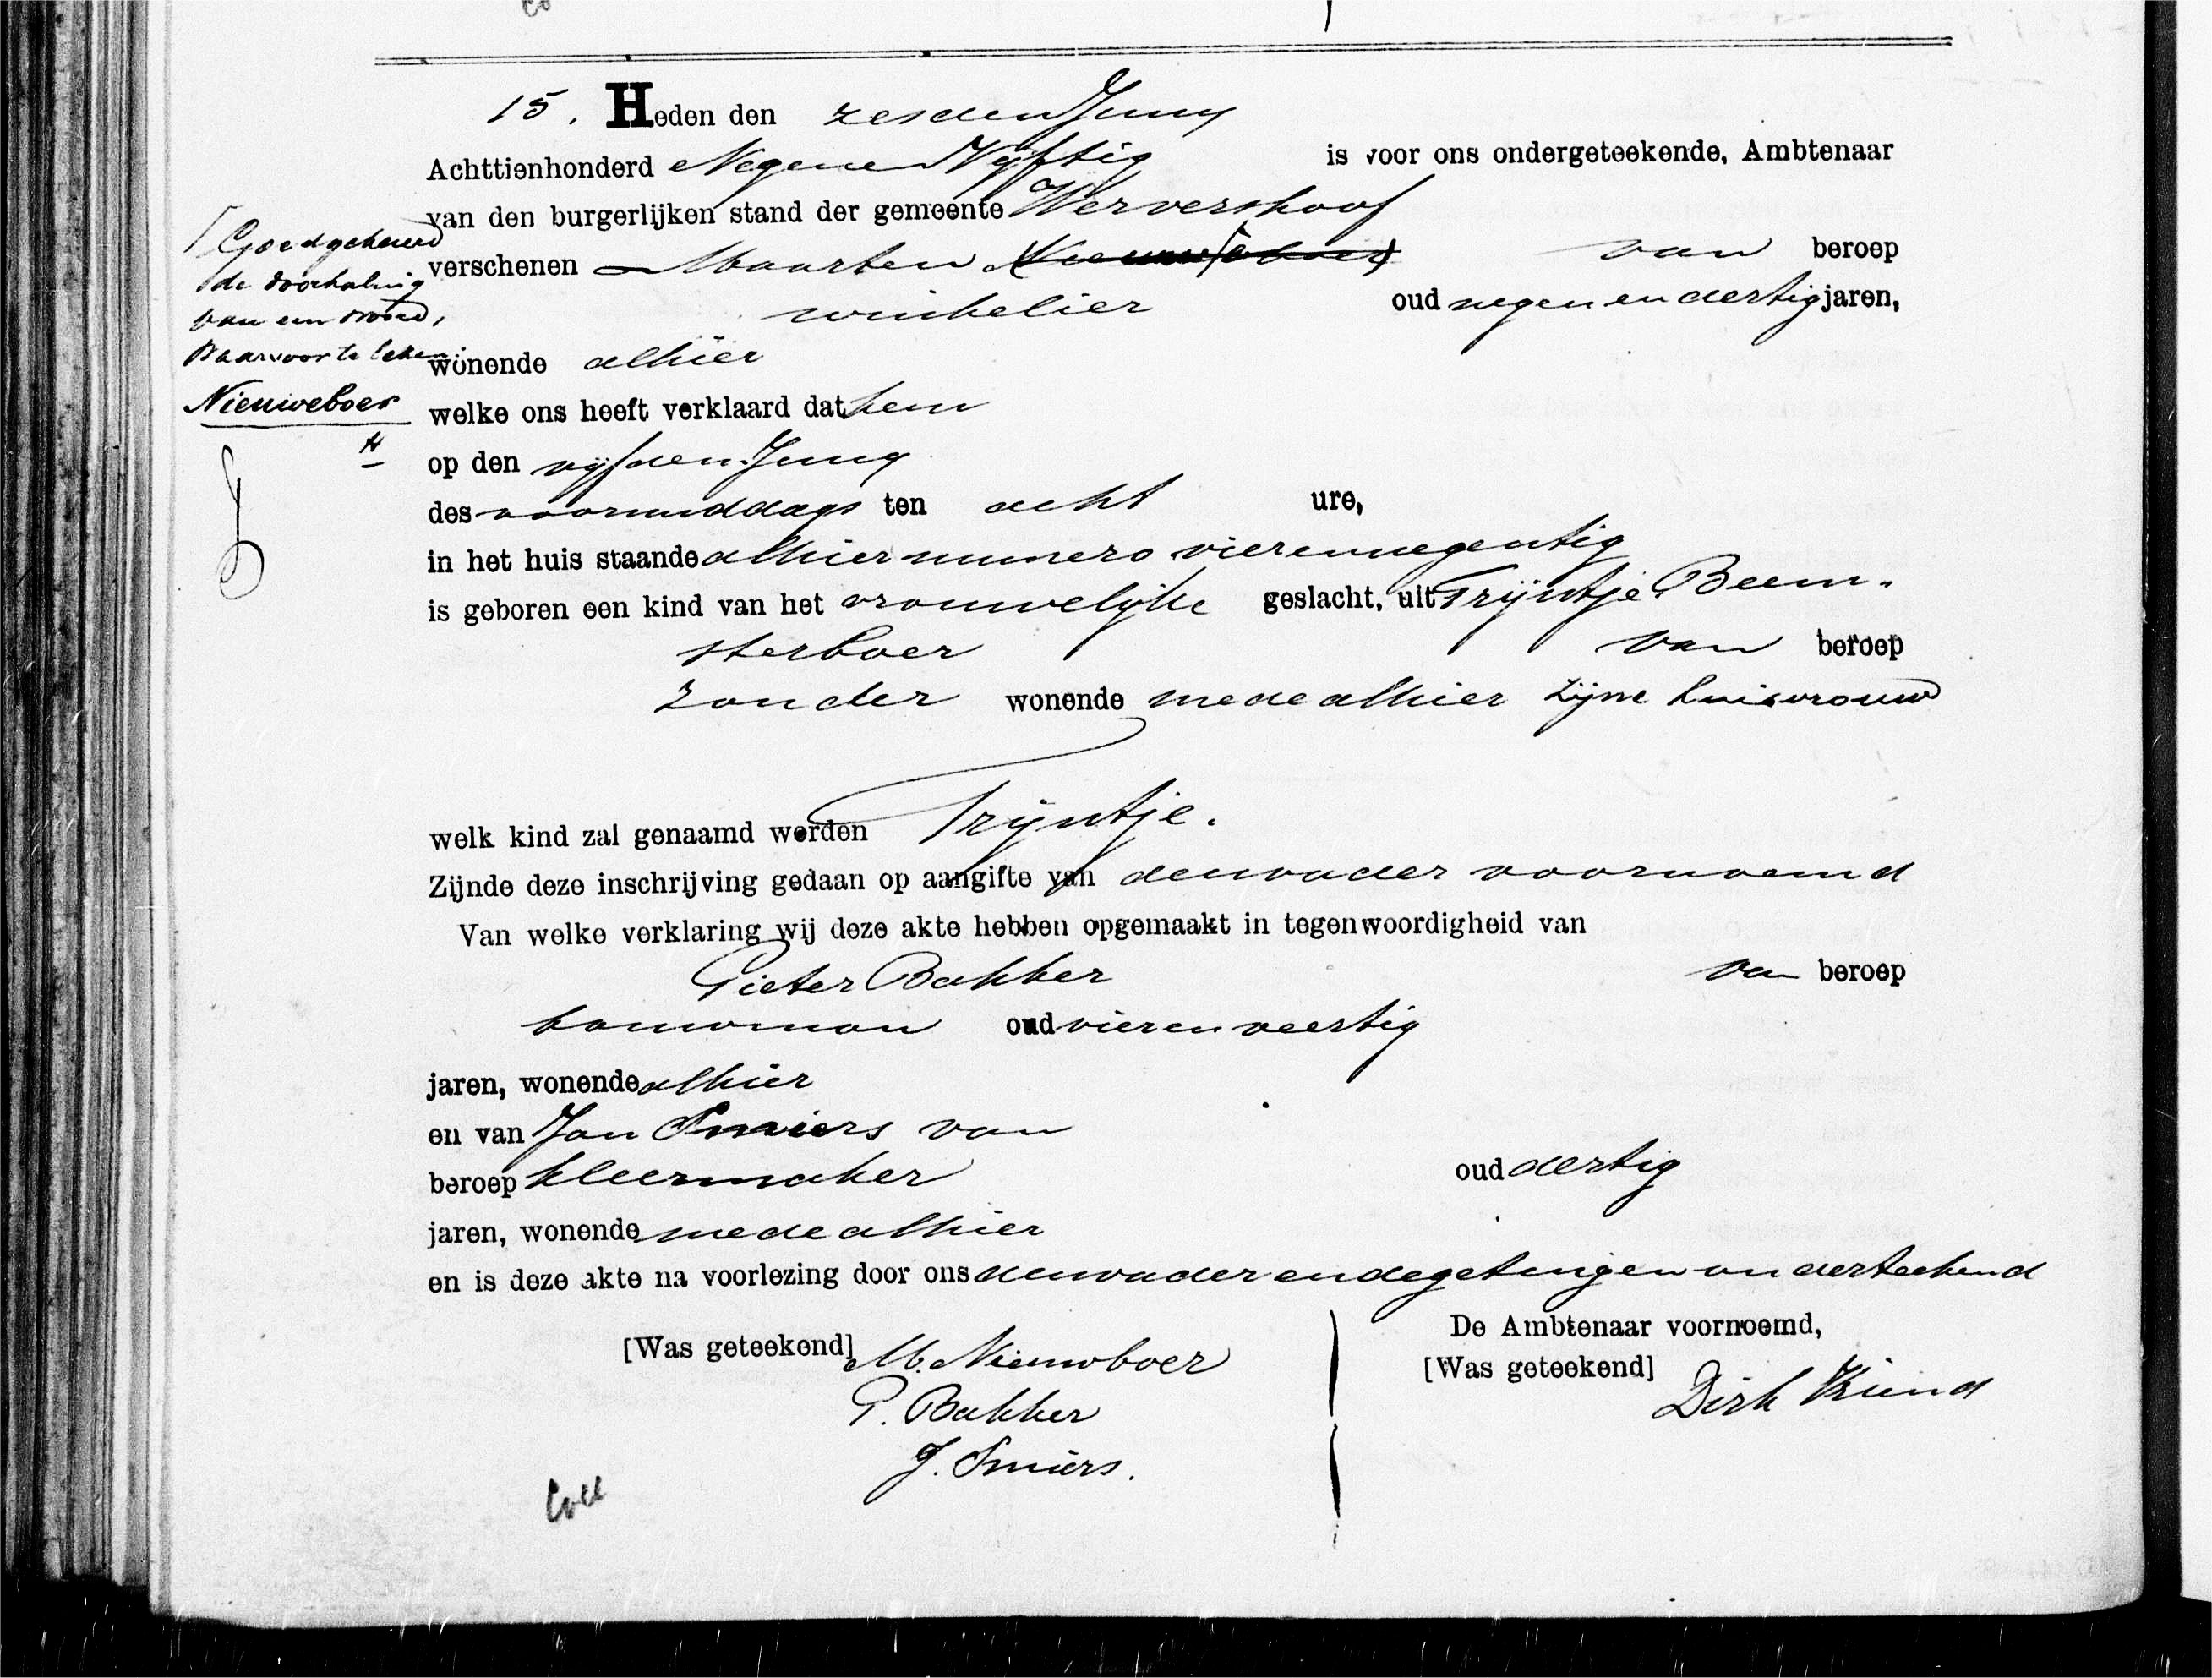 15. Heden den zesden Juny
Achttienhonderd Negenen Vyftig is voor ons ondergeteekende, Ambtenaar
van den burgerlijken stand der gemeente Wervershoof
verschenen Maarten van beroep
winkelier oud negen en dertig jaren,
wonende alhier
welke ons heeft verklaard dat hem
op den vyfden Juny
des voormiddags ten acht ure,
in het huis staande alhier numero vierennegentig
is geboren een kind van het vrouwelyke geslacht, uit Trijntje Beem-
sterboer van beroep
zonder wonende mede alhier zijne huisvrouw
welk kind zal genaamd worden Trijntje.
Zijnde deze inschrijving gedaan op aangifte van den vader voornoemd
Van welke verklaring wij deze akte hebben opgemaakt in tegenwoordigheid van
Pieter Bakker van beroep
bouwman oud vieren veertig
jaren, wonende alhier
en van Jan Smiers van
beroep kleermaker oud dertig
jaren, wonende mede alhier
en is deze akte na voorlezing door ons den vader en de getuigen onderteekend
[Was geteekend] M. Nieuwboer
P. Bakker
J. Smiers.
De Ambtenaar voornoemd,
[Was geteekend] Dirk Vriend
Goedgekeurd
de doorhaling
van een woord,
Daarvoor te lezen:
Nieuweboer
Coll